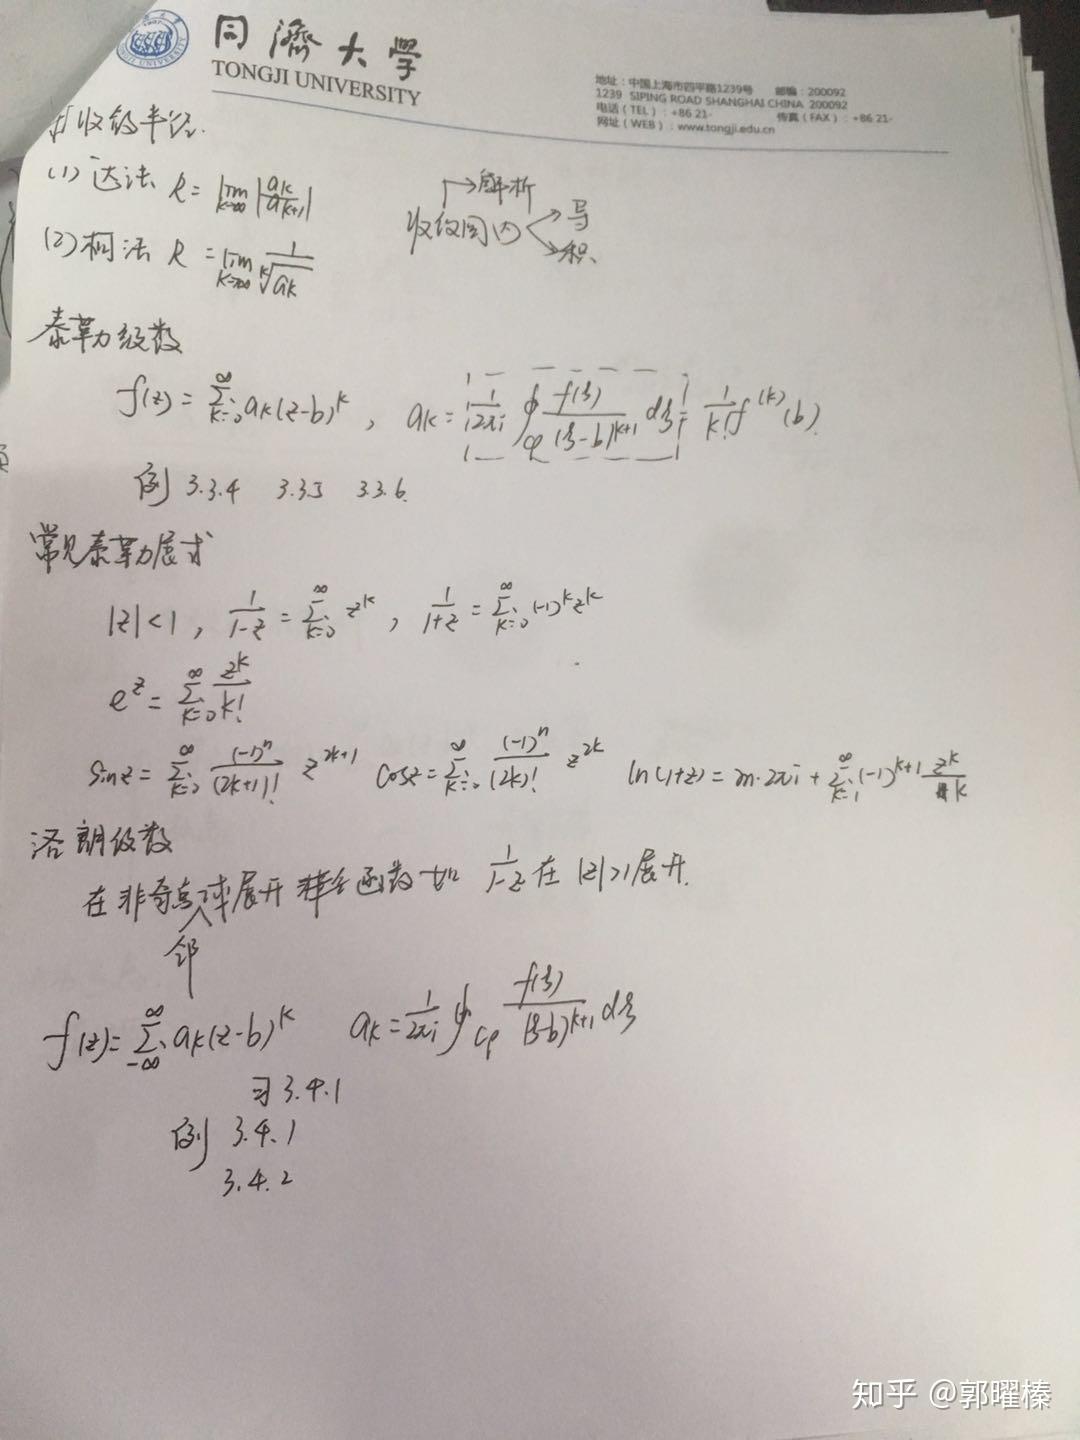 同濟大學
TONGJI UNIVERSITY
地址：中国上海市四平路1239号 邮编：200092
1239 SIPING ROAD SHANGHAI CHINA 200092
电话（TEL）：+86 21- 传真（FAX）：+86 21-
网址（WEB）：www.tongji.edu.cn
收敛半径.
(1) 达法 R = lim_{k→∞} |a_k/a_{k+1}|
→解析
收敛圆内 → 导
→ 积
(2) 柯法 R = lim_{k→∞} 1/\sqrt[k]{a_k}
泰勒级数
f(z) = ∑_{k=0}^{∞} a_k(z-b)^k , a_k = 1/2πi ∮ f(ξ)/(ξ-b)^{k+1} dξ = 1/k! f^{(k)}(b).
例 3.3.4 3.3.5 3.3.6.
常见泰勒展式
|z|<1 , 1/1-z = ∑_{k=0}^{∞} z^k , 1/1+z = ∑_{k=0}^{∞} (-1)^k z^k
e^z = ∑_{k=0}^{∞} z^k/k!
sinz = ∑_{k=0}^{∞} (-1)^n/(2k+1)! z^{2k+1} cosz = ∑_{k=0}^{∞} (-1)^n/(2k)! z^{2k} ln(1+z) = m·2πi + ∑_{k=1}^{∞} (-1)^{k+1} z^k/k
洛朗级数
在非奇点邻域展开 函数如 1/1-z 在 |z|>1展开.
f(z) = ∑_{-∞}^{∞} a_k(z-b)^k a_k = 1/2πi ∮_{Cρ} f(ξ)/(ξ-b)^{k+1} dξ
习3.4.1
例 3.4.1
3.4.2
知乎 @郭曜榛